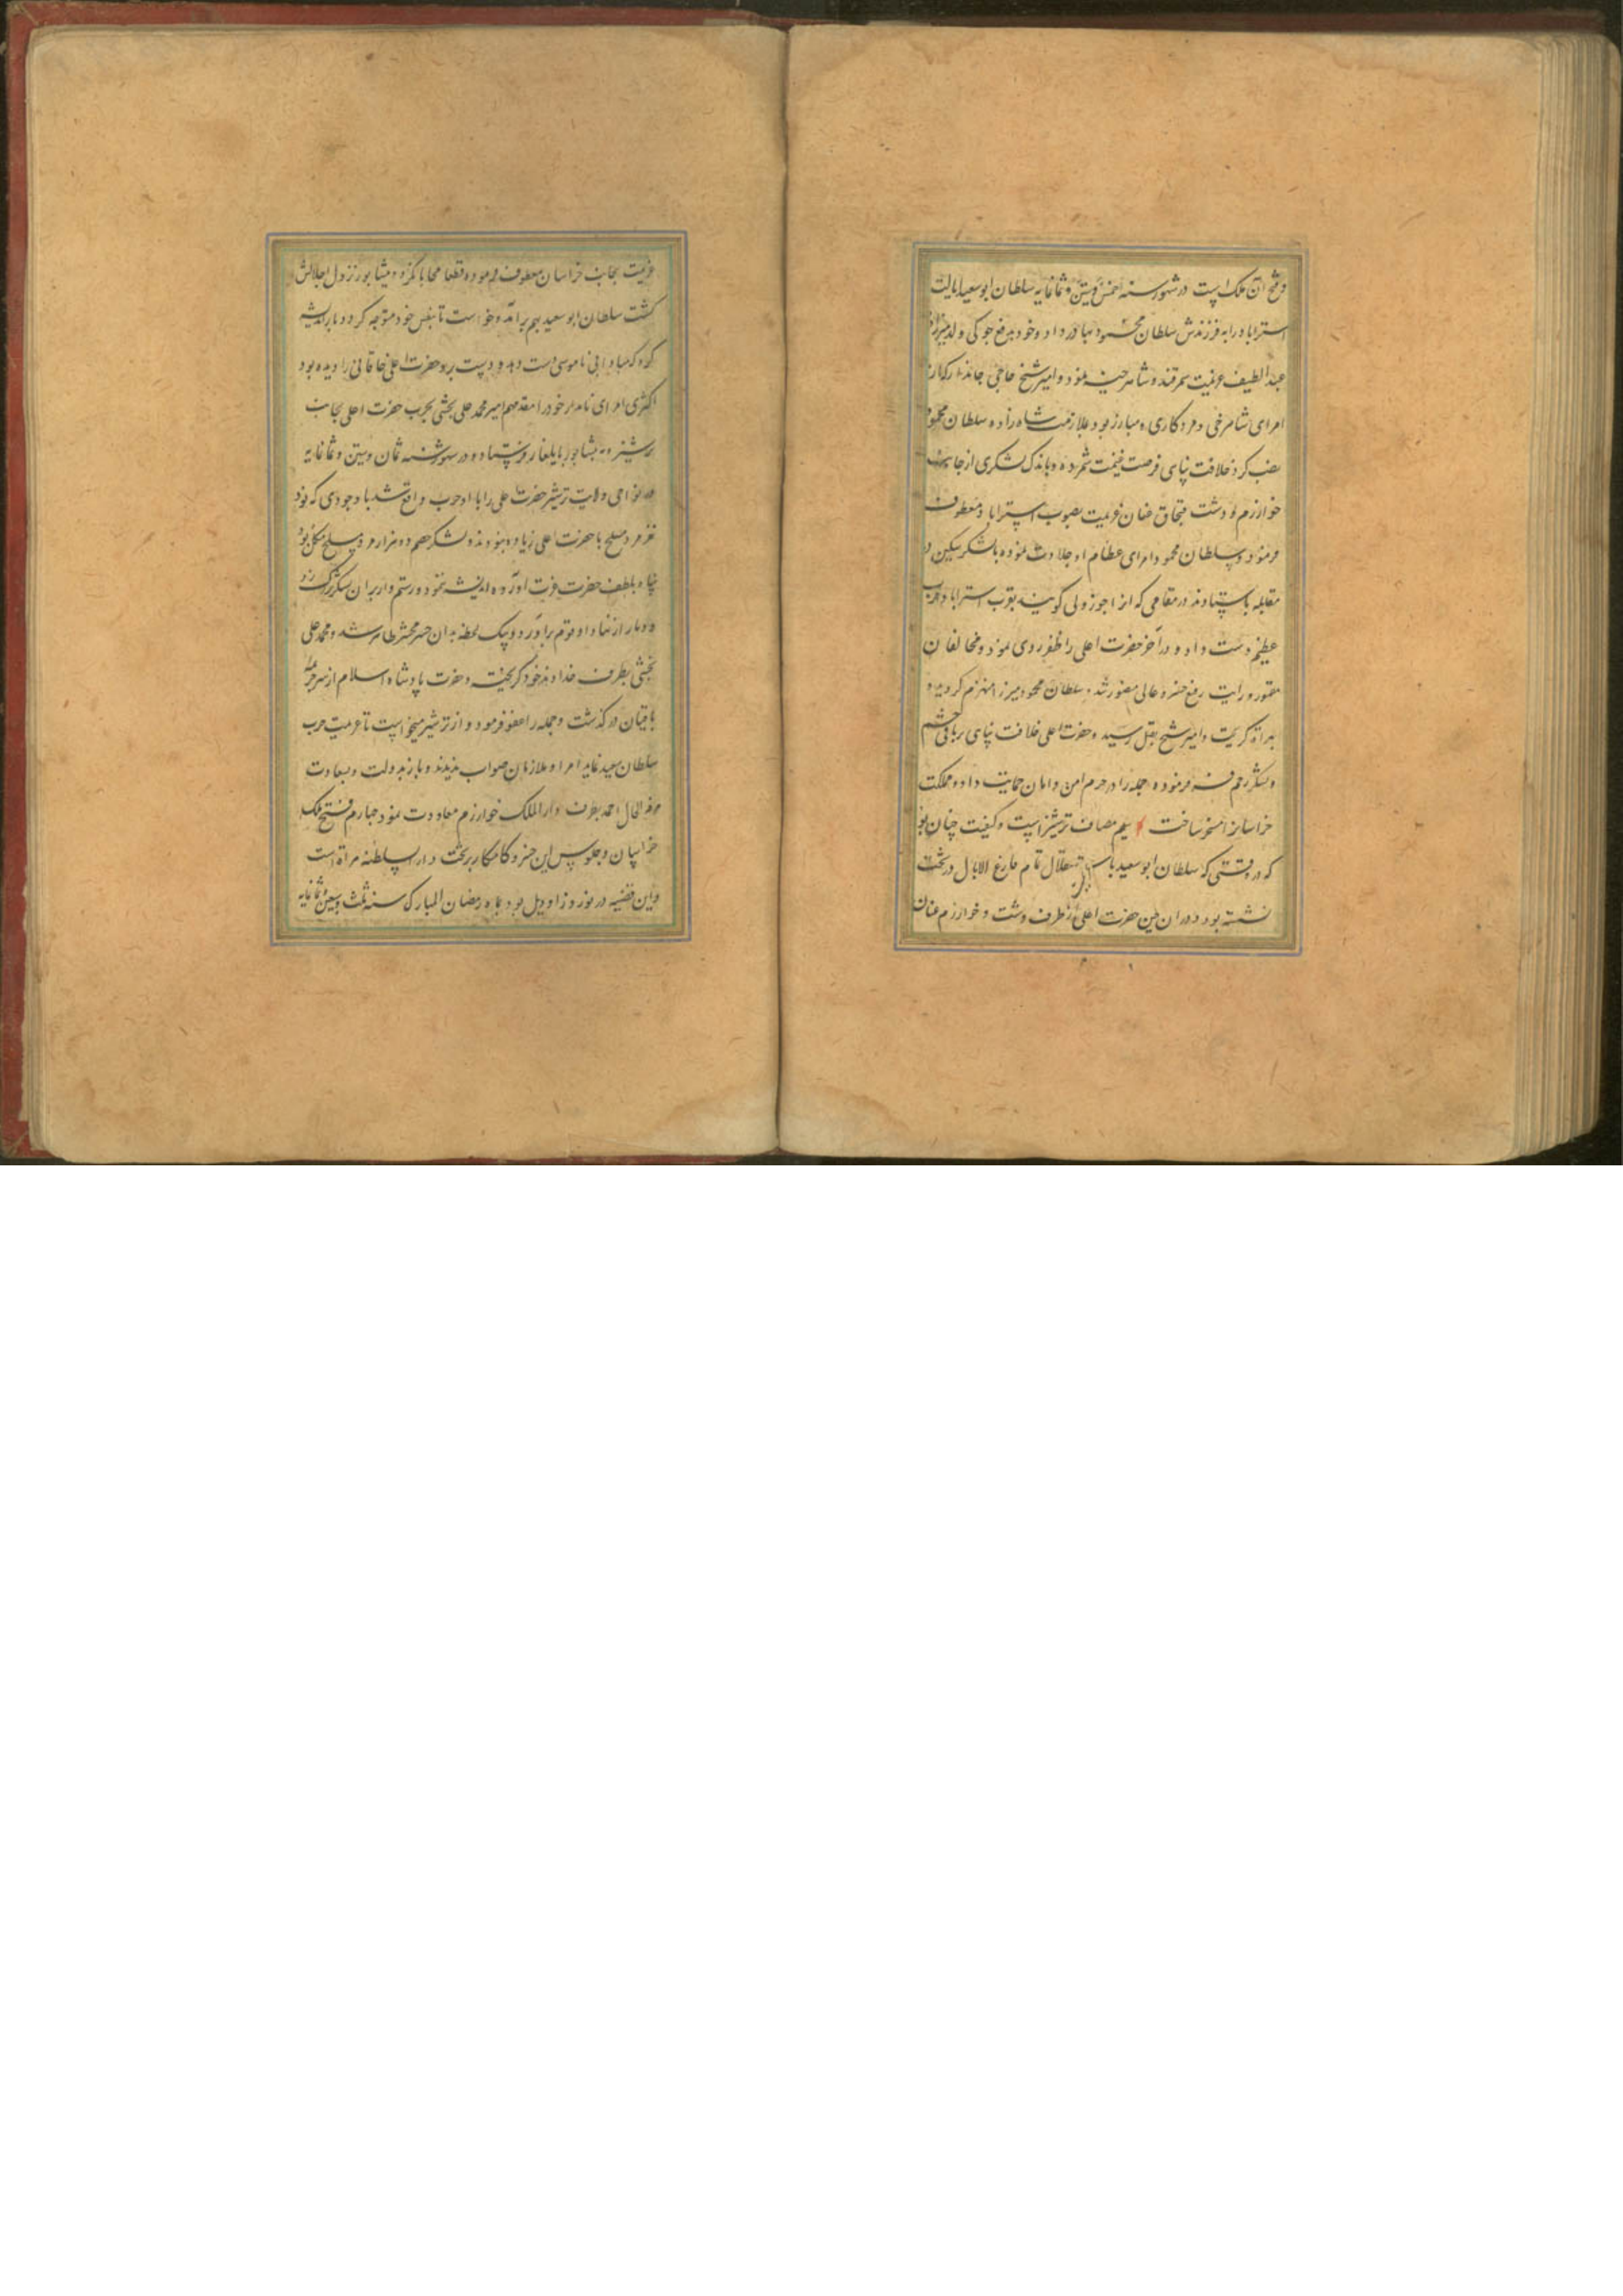 و فتح آن ملک است در شهور سنه خمس و ستین و ثمانمایه سلطان ابوسعید ایالت
استراباد را به فرزندش سلطان محمود بهادر داد و خود بدفع جوکی ولد میرزا
عبد الطیف عزیمت سمرقند و شاهرخیه نمود و امیر شیخ حاجی جاندار که از
امرای شاهرخی و مرد کاری و مبارز بود بملازمت شاه زاده سلطان محمود
نصب کرد خلافت پناهی فرصت غنیمت شمرده و باندک لشکری از جانب
خوارزم و دشت قبچاق عنان عزیمت بصوب استراباد معطوف
فرمود و سلطان محمود و امرای عظام او جلادت نموده با لشکر سنکین در
مقابله باستادند در مقامی که انرا جوز ولی کویند بقرب استراباد حرب
عظیم دست داد و در آخر حضرت اعلی را ظفر روی نمود و مخالفان
مقهور و رایت رفیع خسرو عالی منصور شد و سلطان محمود میرزا منهزم کردید و
بهراة کریخت و امیر شیخ بقتل رسید و حضرت اعلی خلافت پناهی بر باقی حشم
و لشکر رحم فرموده و جمله را در حرم امن و امان حمایت داد و مملکت
خراسانرا مسخر ساخت سیم مصاف ترشیز است و کیفیت چنان بود
که در وقتی که سلطان ابوسعید باستقلال تمام فارغ البال در تخت هراة
نشسته بود در ان حین حضرت اعلی از طرف دشت و خوارزم عنان
عزیمت بجانب خراسان معطوف فرموده قطعا محابا نکرد و نیشابور نزول اجلالش
کشت سلطان ابوسعید بهم برآمد و خواست تا بنفس خود متوجه کردد باز اندیشه
کرد که مبادا بی ناموسی دست دهد و دست برد حضرت اعلی خاقانی را دیده بود
اکثری امرای نامدار خود را مقدمهم امیر محمد علی بخشی بحرب حضرت اعلی بجانب
ترشیز و نیشابور بایلغار روان فرستاد و در شهور سنه ثمان و ستین و ثمانمایه
در نواحی ولایت ترشیز حضرت اعلی را با او حرب واقع شد با وجودی که
مرد مسلح با حضرت اعلی زیاده نبودند و لشکر خصم دو هزار مرد مسلح مکمل بود
پناه بلطف حضرت عزت آورده اندیشه ننمود و رستم وار بران لشکر بزرک زد
و دمار از نهاد او قوم برآورد و بیک لحظه بدان حشر محشر ظاهر شد و محمد علی
بخشی بطرف خداوند خود کریخت و حضرت پادشاه اسلام از سر جرایم
باقیان در گذشت و جمله را عفو فرمود و از ترشیز میخواست تا عزیمت حرب
سلطان سعید نماید امرا و ملازمان صواب ندیدند و باز بدولت و سعادت
مرفه الحال احمد بطرف دار الملک خوارزم معاودت نمود چهارم فتح ملک
خراسان و جلوس این خسرو کامکار بر تخت دار السلطنه هراة است
و این قضیه در نوروز اودیل بود بماه رمضان المبارک سنه ثلث و سبعین و ثمانمایه